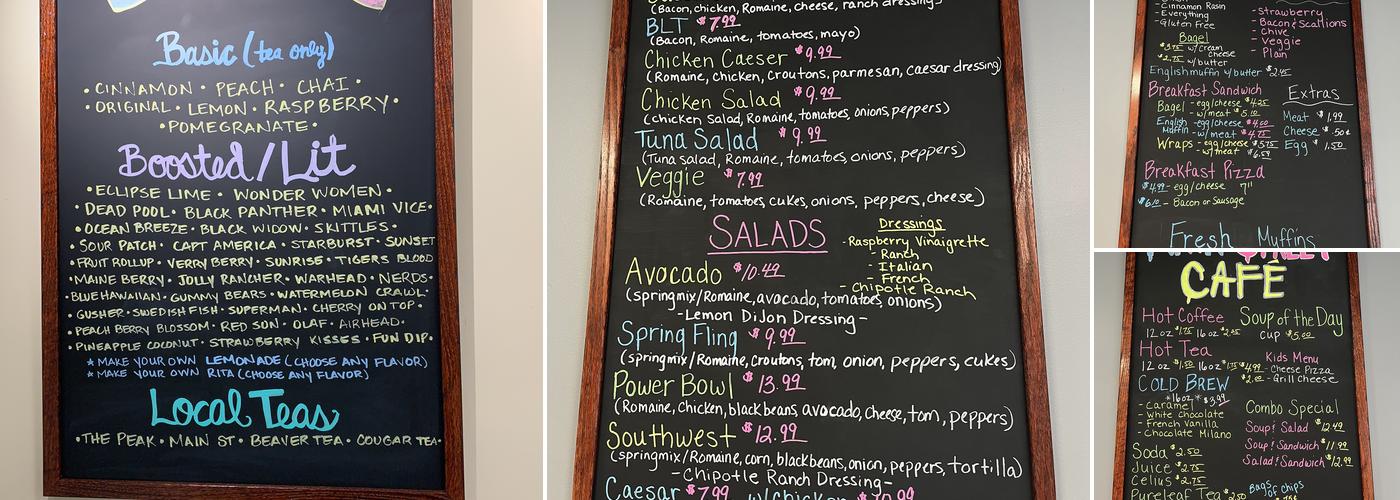 Basic (tea only)
• CINNAMON • PEACH • CHAI •
• ORIGINAL • LEMON • RASPBERRY •
• POMEGRANATE •
Boosted/Lit
• ECLIPSE LIME • WONDER WOMEN •
• DEAD POOL • BLACK PANTHER • MIAMI VICE •
• OCEAN BREEZE • BLACK WIDOW • SKITTLES •
• SOUR PATCH • CAPT AMERICA • STARBURST • SUNSET
• FRUIT ROLLUP • VERRY BERRY • SUNRISE • TIGERS BLOOD
• MAINE BERRY • JOLLY RANCHER • WARHEAD • NERDS •
• BLUE HAWAIIAN • GUMMY BEARS • WATERMELON CRAWL •
• GUSHER • SWEDISH FISH • SUPERMAN • CHERRY ON TOP •
• PEACH BERRY BLOSSOM • RED SON • OLAF • AIRHEAD •
• PINEAPPLE COCONUT • STRAWBERRY KISSES • FUN DIP •
* MAKE YOUR OWN LEMONADE (CHOOSE ANY FLAVOR)
* MAKE YOUR OWN RITA (CHOOSE ANY FLAVOR)
Local Teas
• THE PEAK • MAIN ST • BEAVER TEA • COUGAR TEA •
(Bacon, chicken, Romaine, cheese, ranch dressing)
BLT $7.99
(Bacon, Romaine, tomatoes, mayo)
Chicken Caeser $9.99
(Romaine, chicken, croutons, parmesan, caesar dressing)
Chicken Salad $9.99
(chicken Salad, Romaine, tomatoes, onions, peppers)
Tuna Salad $9.99
(Tuna salad, Romaine, tomatoes, onions, peppers)
Veggie $7.99
(Romaine, tomatoes, cukes, onions, peppers, cheese)
SALADS
Dressings
- Raspberry Vinaigrette
- Ranch
- Italian
- French
- Chipotle Ranch
Avocado $10.49
(springmix/Romaine, avocado, tomatoes, onions)
- Lemon DiJon Dressing -
Spring Fling $9.99
(springmix/Romaine, croutons, tom, onion, peppers, cukes)
Power Bowl $13.99
(Romaine, chicken, black beans, avocado, cheese, tom, peppers)
Southwest $12.99
(springmix/Romaine, corn, blackbeans, onion, peppers, tortilla)
- Chipotle Ranch Dressing -
Caesar $7.99 w/chicken
- Cinnamon Rasin
- Everything
- Gluten Free
- Strawberry
- Bacon & Scallions
- Chive
- Veggie
- Plain
Bagel
$3.75 w/cream cheese
$2.75 w/butter
English muffin w/butter $2.45
Breakfast Sandwich
Bagel - egg/cheese $4.25
- w/meat $5.10
English Muffin - egg/cheese $4.00
- w/meat $4.75
Wraps - egg/cheese $5.75
- w/meat $6.59
Extras
Meat $1.99
Cheese $.50¢
Egg $1.50
Breakfast Pizza
$4.99 - egg/cheese 7"
$6.10 - Bacon or Sausage
Fresh Muffins
CAFÉ
Hot Coffee
12 oz $1.75 16 oz $2.25
Hot Tea
12 oz $1.50 16 oz $1.75
COLD BREW
*16oz* $3.99
- Caramel
- White chocolate
- French Vanilla
- Chocolate Milano
Soda $2.50
Juice $2.75
Celius $2.75
Pureleaf Tea
Soup of the Day
Cup $5.00
Kids Menu
$4.99 - Cheese Pizza
$2.00 - Grill Cheese
Combo Special
Soup/Salad $12.49
Soup/Sandwich $11.99
Salad/Sandwich $12.99
Bags of Chips